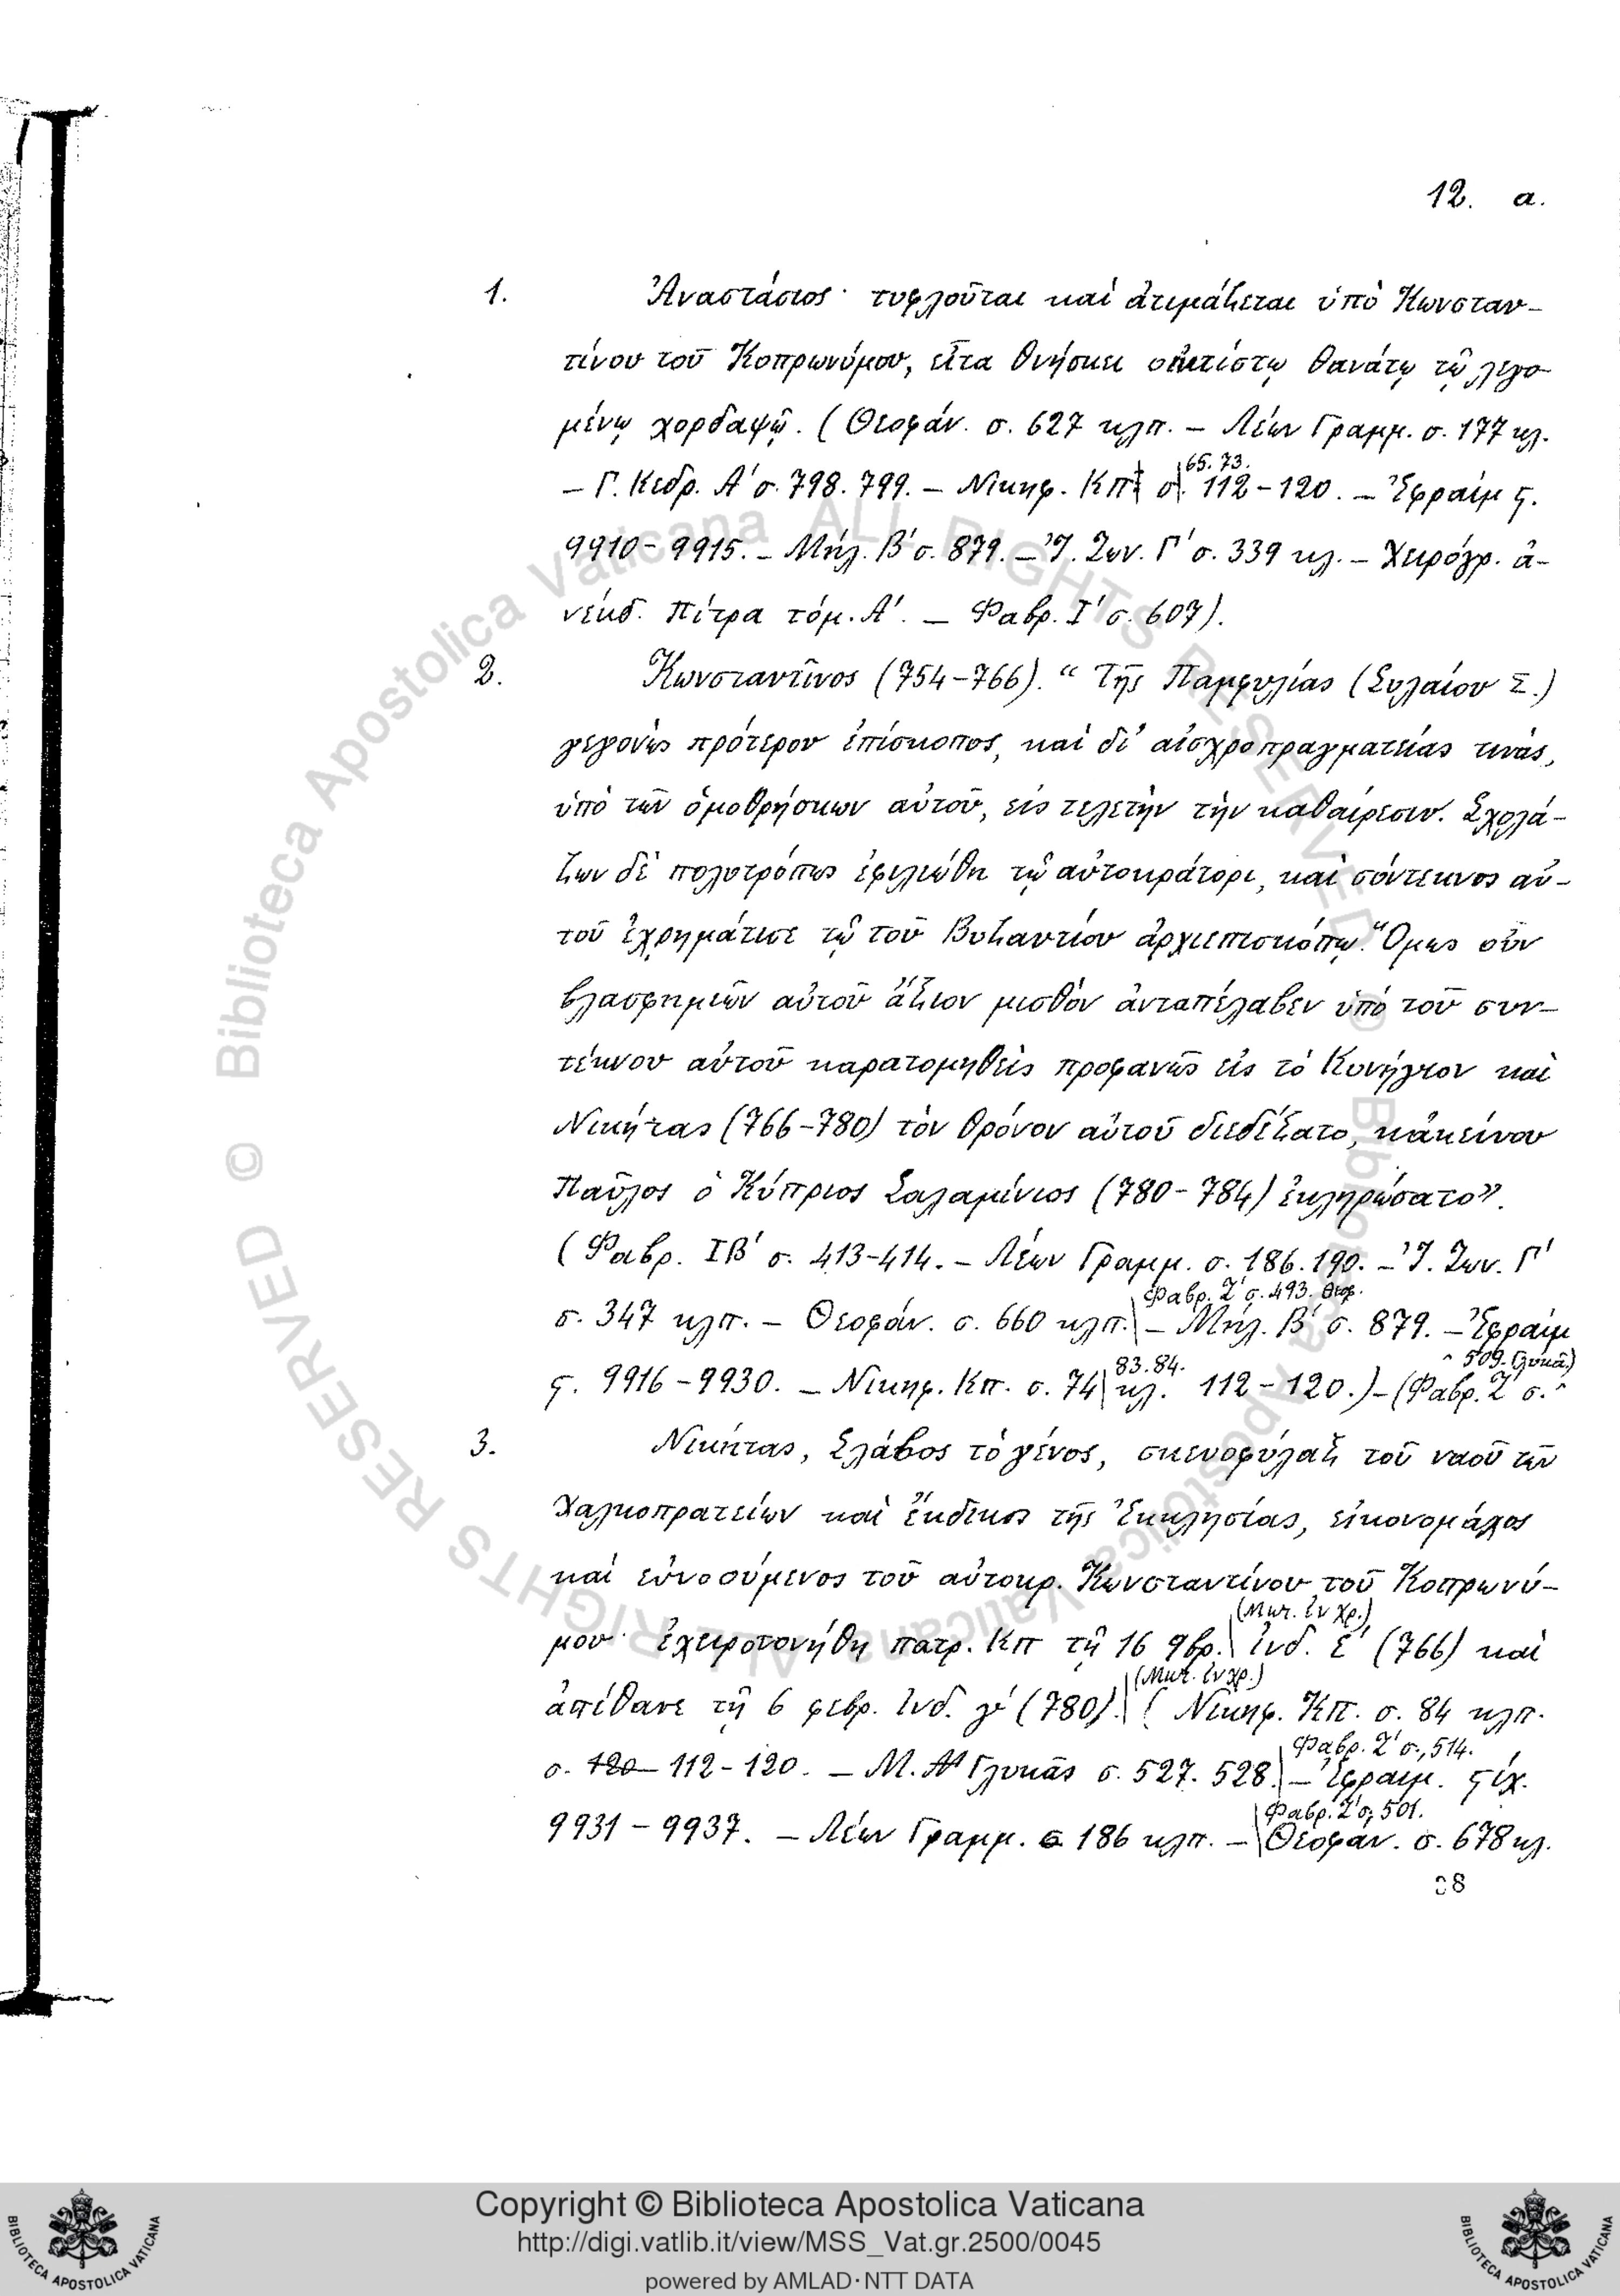 12. α.
1. Ἀναστάσιος· τυφλοῦται καὶ ἀτιμάζεται ὑπὸ Κωνσταν-
τίνου τοῦ Κοπρωνύμου, εἶτα θνήσκει οἰκτίστῳ θανάτῳ τῷ λεγο-
μένῳ χορδαψῷ. (Θεοφάν. σ. 627 κλπ. – Λέων Γραμμ. σ. 177 κλ.
65. 73.
– Γ. Κεδρ. Αʹ σ. 798. 799. – Νικηφ. Κπ σ. 112–120. – Ἐφραίμ ς.
9910–9915. – Μήλ. Βʹ σ. 879. – Ἰ. Ζων. Γʹ σ. 339 κλ. – Χειρόγρ. ἀ-
νέκδ. Πίτρα τόμ. Αʹ. – Φαβρ. Ιʹ σ. 607).
2. Κωνσταντῖνος (754–766). “Τῆς Παμφυλίας (Συλαίου Σ.)
γεγονὼς πρότερον ἐπίσκοπος, καὶ δι᾽ αἰσχροπραγματείας τινὰς,
ὑπὸ τῶν ὁμοθρήσκων αὐτοῦ, εἰς τελετὴν τὴν καθαίρεσιν. Σχολά-
ζων δὲ πολυτρόπως ἐφιλιώθη τῷ αὐτοκράτορι, καὶ σύντεκνος αὐ-
τοῦ ἐχρημάτισε τῷ τοῦ Βυζαντίου ἀρχιεπισκόπῳ. Ὅμως οὖν
βλασφημιῶν αὐτοῦ ἄξιον μισθὸν ἀνταπέλαβεν ὑπὸ τοῦ συν-
τέκνου αὐτοῦ καρατομηθεὶς προφανῶς εἰς τὸ Κυνήγιον καὶ
Νικήτας (766–780) τὸν θρόνον αὐτοῦ διεδέξατο, κἀκείνου
Παῦλος ὁ Κύπριος Σαλαμίνιος (780–784) ἐκληρώσατο”.
(Φαβρ. ΙΒʹ σ. 413–414. – Λέων Γραμμ. σ. 186. 190. – Ἰ. Ζων. Γʹ
Φαβρ. Ζʹ σ. 493. Θεοφ.
σ. 347 κλπ. – Θεοφάν. σ. 660 κλπ. – Μήλ. Βʹ σ. 879. – Ἐφραίμ
83. 84. ^ 509. Γλυκᾶ.)
ς. 9916–9930. – Νικηφ. Κπ. σ. 74 κλ. 112–120.) – (Φαβρ. Ζʹ σ. ^
3. Νικήτας, Σλάβος τὸ γένος, σκευοφύλαξ τοῦ ναοῦ τῶν
Χαλκοπρατείων καὶ ἔκδικος τῆς Ἐκκλησίας, εἰκονομάχος
καὶ εὐνοούμενος τοῦ αὐτοκρ. Κωνσταντίνου τοῦ Κοπρωνύ-
(Μωτ. ἐν χρ.)
μου· ἐχειροτονήθη πατρ. Κπ τῇ 16 9βρ. ἰνδ. εʹ (766) καὶ
(Μωτ. ἐν χρ.)
ἀπέθανε τῇ 6 φεβρ. ἰνδ. γʹ (780). (Νικηφ. Κπ. σ. 84 κλπ.
Φαβρ. Ζʹ σ. 514.
σ. 120 112–120. – Μ. Γλυκᾶς σ. 527. 528. – Ἐφραίμ. ςίχ.
Φαβρ. Ζʹ σ. 501.
9931–9937. – Λέων Γραμμ. σ 186 κλπ. – Θεοφάν. σ. 678 κλ.
38
© Biblioteca Apostolica Vaticana ALL RIGHTS RESERVED
© Biblioteca Apostolica Vaticana ALL RIGHTS RESERVED
Copyright © Biblioteca Apostolica Vaticana
http://digi.vatlib.it/view/MSS_Vat.gr.2500/0045
powered by AMLAD·NTT DATA
BIBLIOTECA APOSTOLICA VATICANA
BIBLIOTECA APOSTOLICA VATICANA